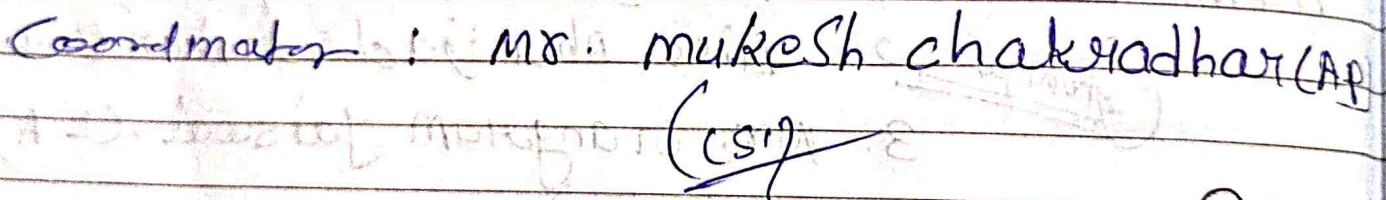 Coordinator : Mr. Mukesh chakradhar (AP)
(CSI)